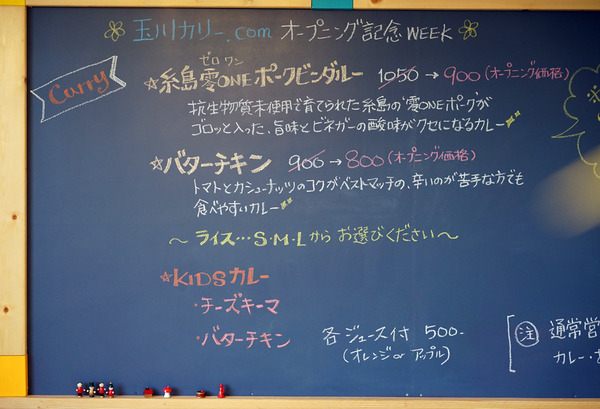 玉川カリー.com オープニング記念WEEK
Curry
ゼロ ワン
☆糸島零ONEポークビンダルー 1050→900(オープニング価格)
抗生物質未使用で育てられた糸島の"零ONEポーク"が
ゴロッと入った、旨味とビネガーの酸味がクセになるカレー
☆バターチキン 900→800(オープニング価格)
トマトとカシューナッツのコクがベストマッチの、辛いのが苦手な方でも
食べやすいカレー
～ ライス…S・M・Lから お選びください～
☆KIDSカレー
・チーズキーマ
・バターチキン
各ジュース付 500-
(オレンジorアップル)
注 通常営
カレー・